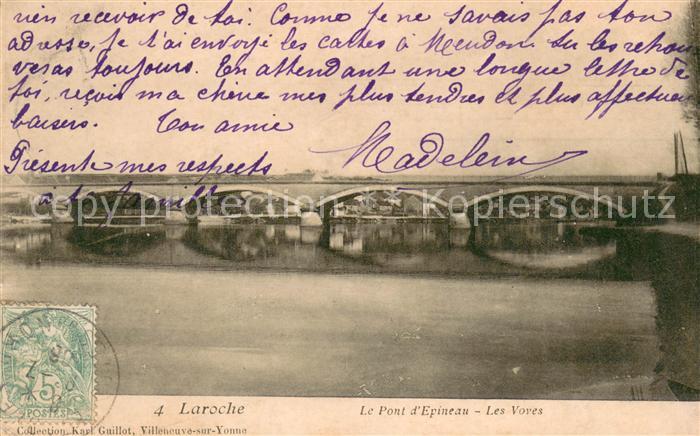 rien recevoir de toi. Comme je ne savais pas ton
adresse, je t'ai envoyé les cartes à Meudon tu les retrou
veras toujours. En attendant une longue lettre de
toi, reçois ma chère mes plus tendres et plus affectueux
baisers. Ton amie
Madelein
Présente mes respects
à ta famille
copyright protection Kopierschutz
5c
POSTES
4 Laroche
Le Pont d'Epineau - Les Voves
Collection Karl Guillot, Villeneuve-sur-Yonne